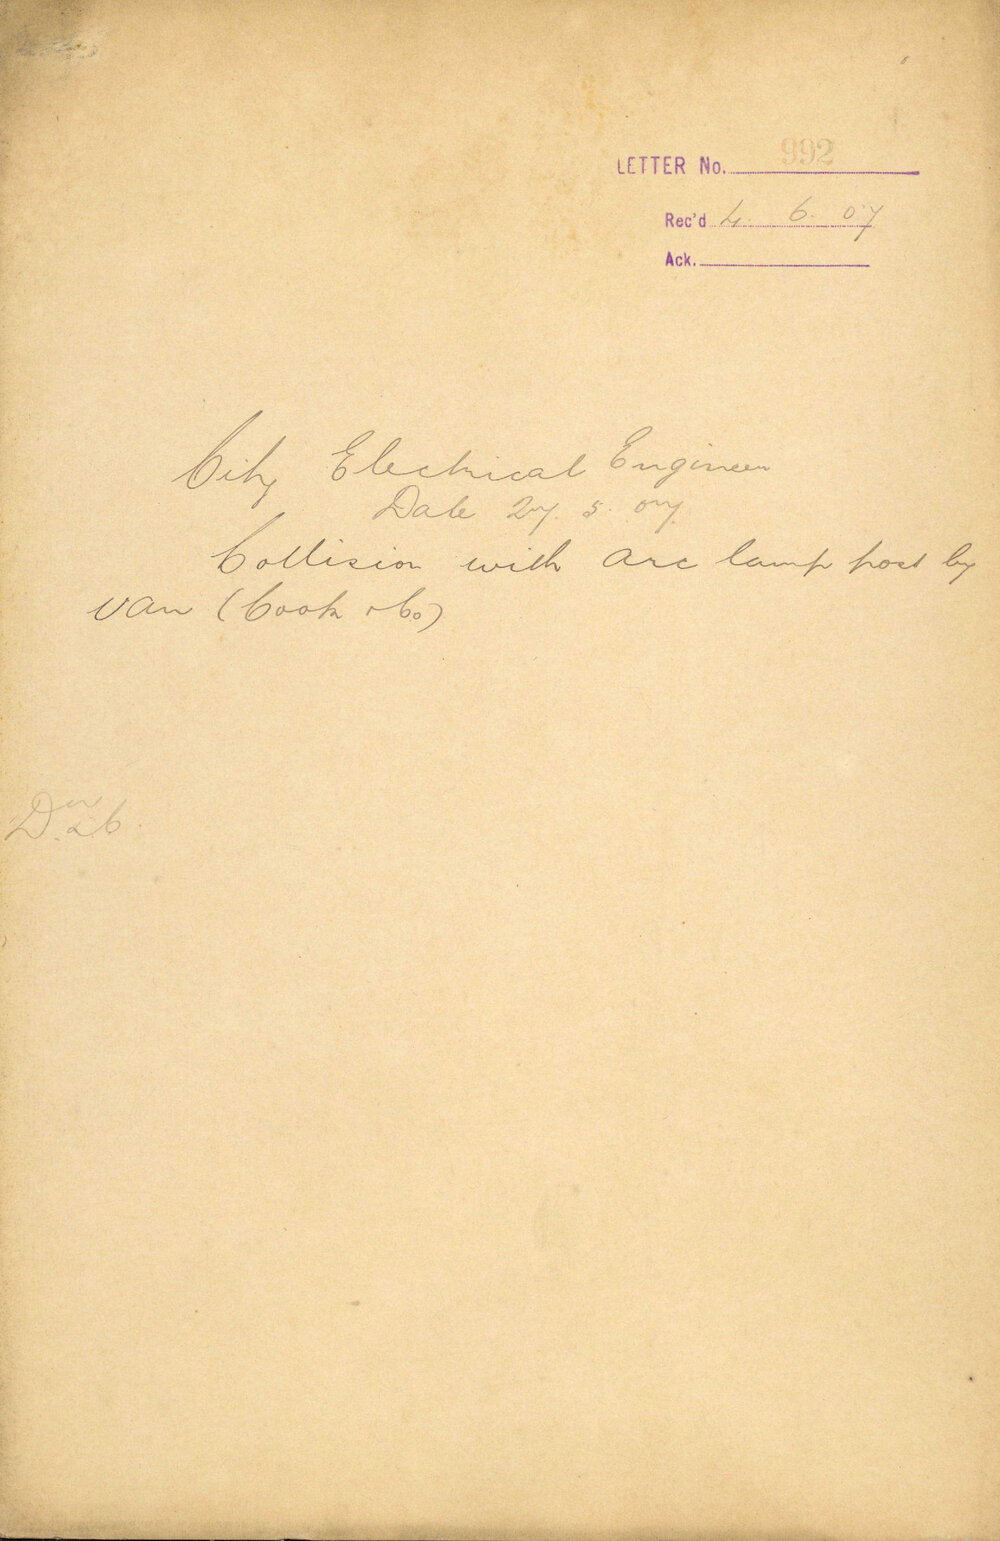 LETTER No. 992
Rec'd 4. 6. 07
Ack.
City Electrical Engineer
Date 27. 5. 07
Collision with arc lamp post by
van (Cook & Co)